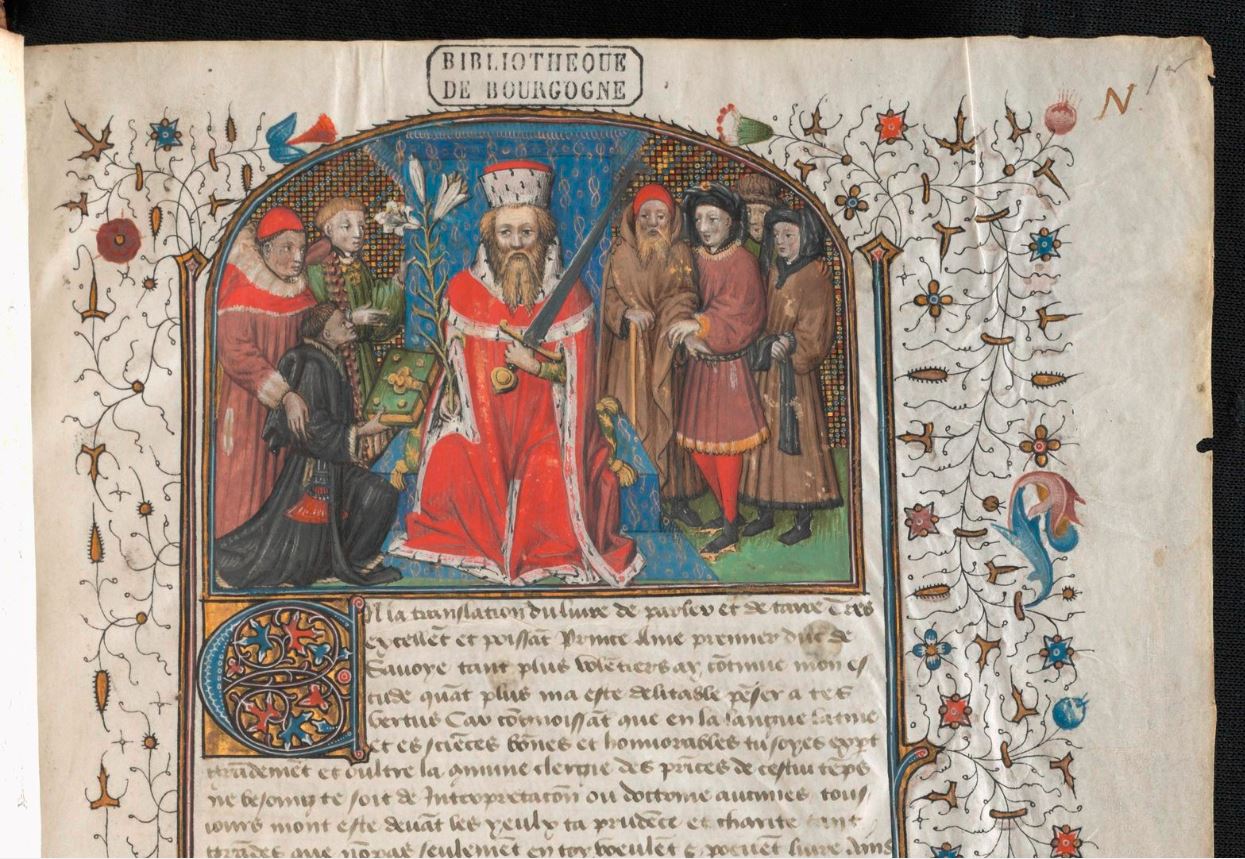 BIBLIOTHEQUE
DE BOURGOGNE
N
En la translation du livre de parler et de taire
excellēt et poissāt Prince Ame premier duc de
Savoye tant plus volētiers ay cōtinue mon es
tude quāt plus ma este delitable pēser a tes
vertus Car cōgnoissāt que en la langue latine
et es sciēces bōnes et honnorables tu soyes
et oultre la cōmune clergie des prīces de cestui tēps
ne besoing te soit de Interpretacōn ou doctrine aucunes tous
iours mont este devāt les yeulx ta prudēce et charite tant
que nōpas seulemēt en toy veulēt